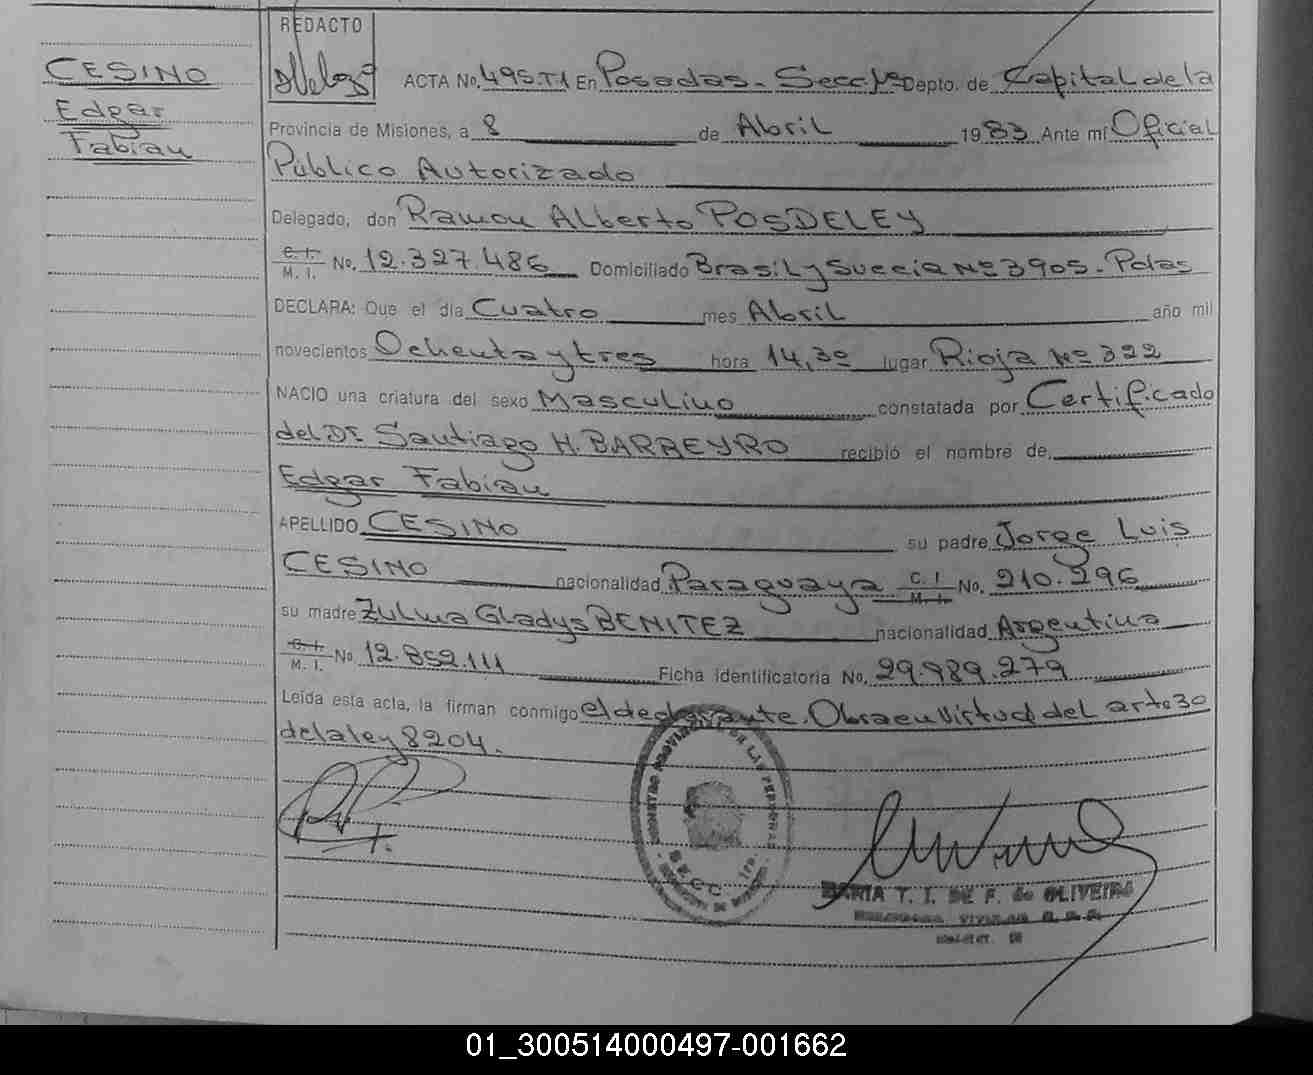 REDACTO
CESINO
Edgar
Fabian
ACTA No. 495.T.1 En Posadas - Secc. 1ª Depto. de Capital de la
Provincia de Misiones, a 8 de Abril 1983 Ante mí Oficial
Público Autorizado
Delegado, don Ramon Alberto POSDELEY
C. I.
M. I. No. 12.327.486 Domiciliado Brasil y Suecia Nº 3905 - Pdas
DECLARA: Que el día Cuatro mes Abril año mil
novecientos Ochenta y tres hora 14,30 lugar Rioja Nº 322
NACIO una criatura del sexo Masculino constatada por Certificado
del Dr. Santiago H. BARREYRO recibió el nombre de
Edgar Fabian
APELLIDO CESINO su padre Jorge Luis
CESINO nacionalidad Paraguaya C. I
M. I. No. 210.296
su madre Zulma Gladys BENITEZ nacionalidad Argentina
C. I.
M. I. No 12.852.111 Ficha identificatoria No. 29.989.279
Leída esta acta, la firman conmigo el declarante. Obra en Virtud del artº 30
de la ley 8204.
REGISTRO PROVINCIAL DE LAS PERSONAS
SECC. 1ra.
MARIA T. I. DE F. de OLIVEIRA
01_300514000497-001662